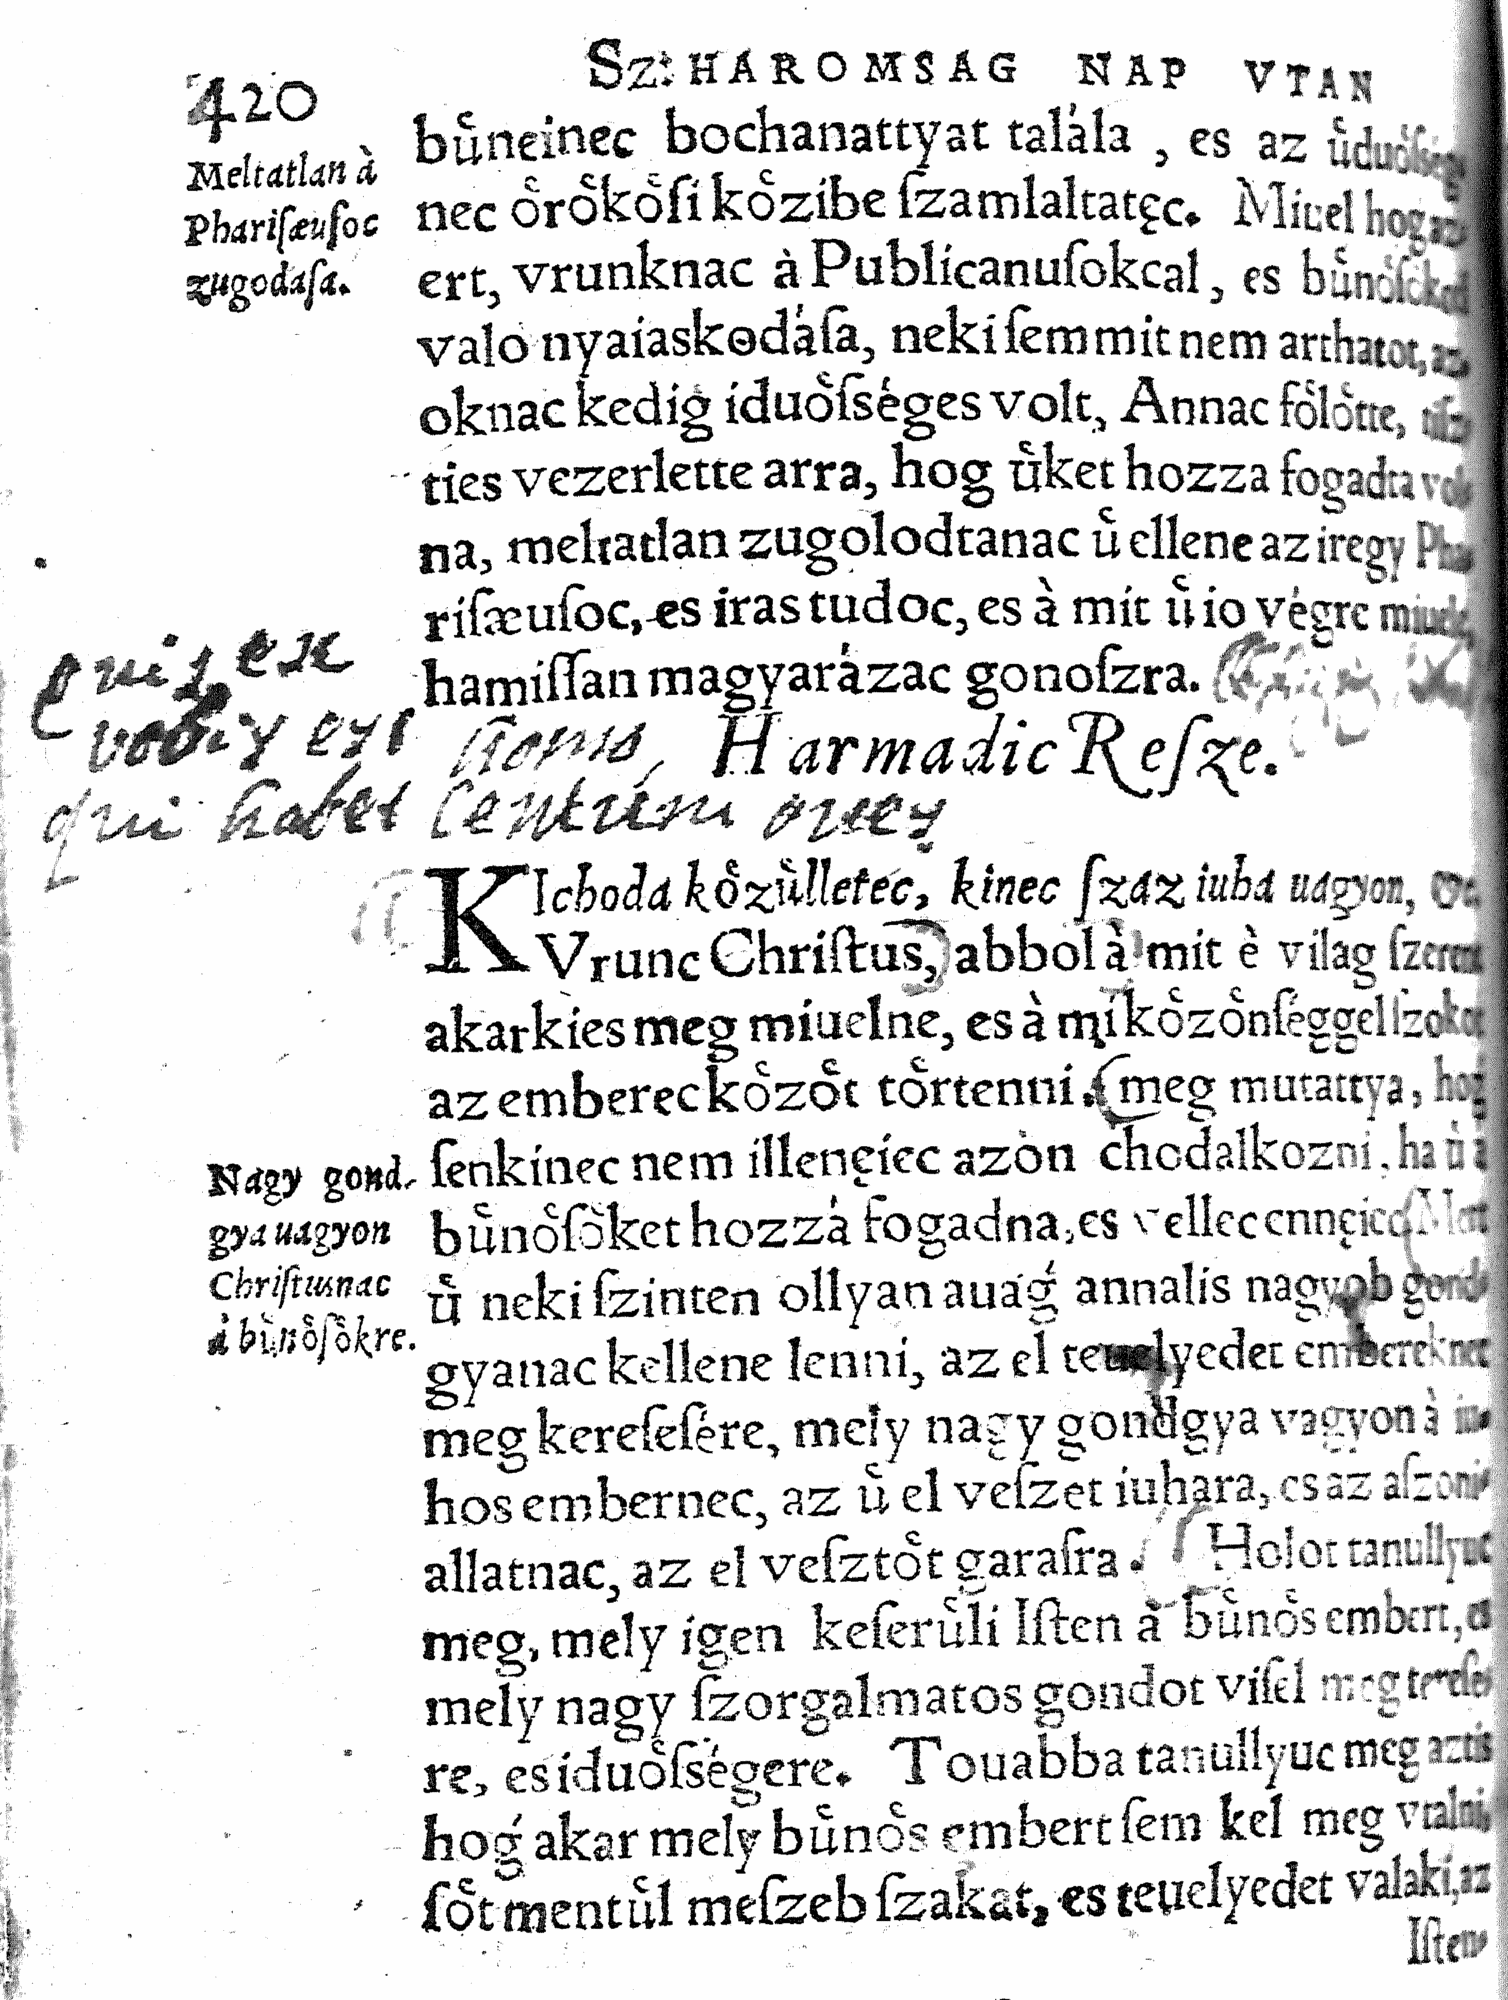 420
Sz: HAROMSAG NAP VTAN
Meltatlan à
Phariſæuſoc
zugodaſa.
bu̇neinec bochanattyat talála, es az
nec oͤroͤkoͤſi koͤzibe ſzamlaltatęc. Miuel
ert, vrunknac à Publicanuſokcal, es
valo nyaiaskodáſa, neki ſemmit nem arthatot, az
oknac kedig iduoͤſséges volt, Annac foͤloͤtte,
ties vezerlette arra, hog uͤket hozza fogadta
na, meltatlan zugolodtanac uͤ ellene az iregy
riſæuſoc, es iras tudoc, es à mit uͤ io végre
hamiſſan magyarázac gonoſzra.
quis ex
vobis est homo,
qui habet Centum oves
Harmadic Reſze.
KIchoda koͤzuͤlletec, kinec ſzaz iuha uagyon, &c.
Vrunc Chriſtus, abbol à mit è vilag ſzerent
akarkies meg miuelne, es à mi koͤzoͤnſéggel ſzokot
az emberec koͤzoͤt toͤrtenni. meg mutattya, hog
ſenkinec nem illenęiec azon chodalkozni, ha uͤ à
buͤnoͤſoͤket hozzá fogadna, es vellec ennęiec. Mert
uͤ neki ſzinten ollyan auaǵ annalis nagyob gond
gyanac kellene lenni, az el teuelyedet embereknec
meg kereſeſére, mely nagy gondgya vagyon à iu
hos embernec, az uͤ el veſzet iuhara, es az aſzoni
allatnac, az el veſztoͤt garaſra. Holot tanullyuc
meg, mely igen keſeruͤli Iſten à buͤnoͤs embert, es
mely nagy ſzorgalmatos gondot viſel meg tereſe
re, es iduoͤſségere. Touabba tanullyuc meg aztis
hoǵ akar mely buͤnoͤs embert ſem kel meg vtalni,
ſoͤt mentuͤl meſzeb ſzakat, es teuelyedet valaki, az
Nagy gond-
gya uagyon
Chriſtusnac
à buͤnoͤſoͤkre.
Iſten